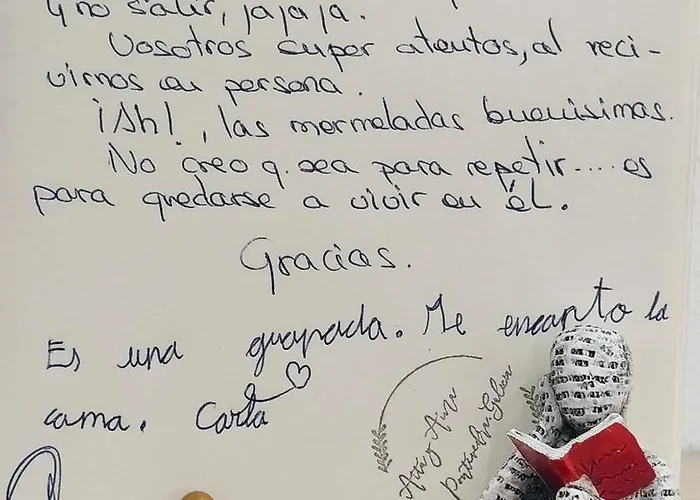 y no salir, jajaja.
Vosotros super atentos, al reci-
virnos en persona.
¡Ah!, las mermeladas buenisimas.
No creo q. sea para repetir.... es
para quedarse a vivir en él.
Gracias.
Es una guapada. Me encanto la
cama. Carla